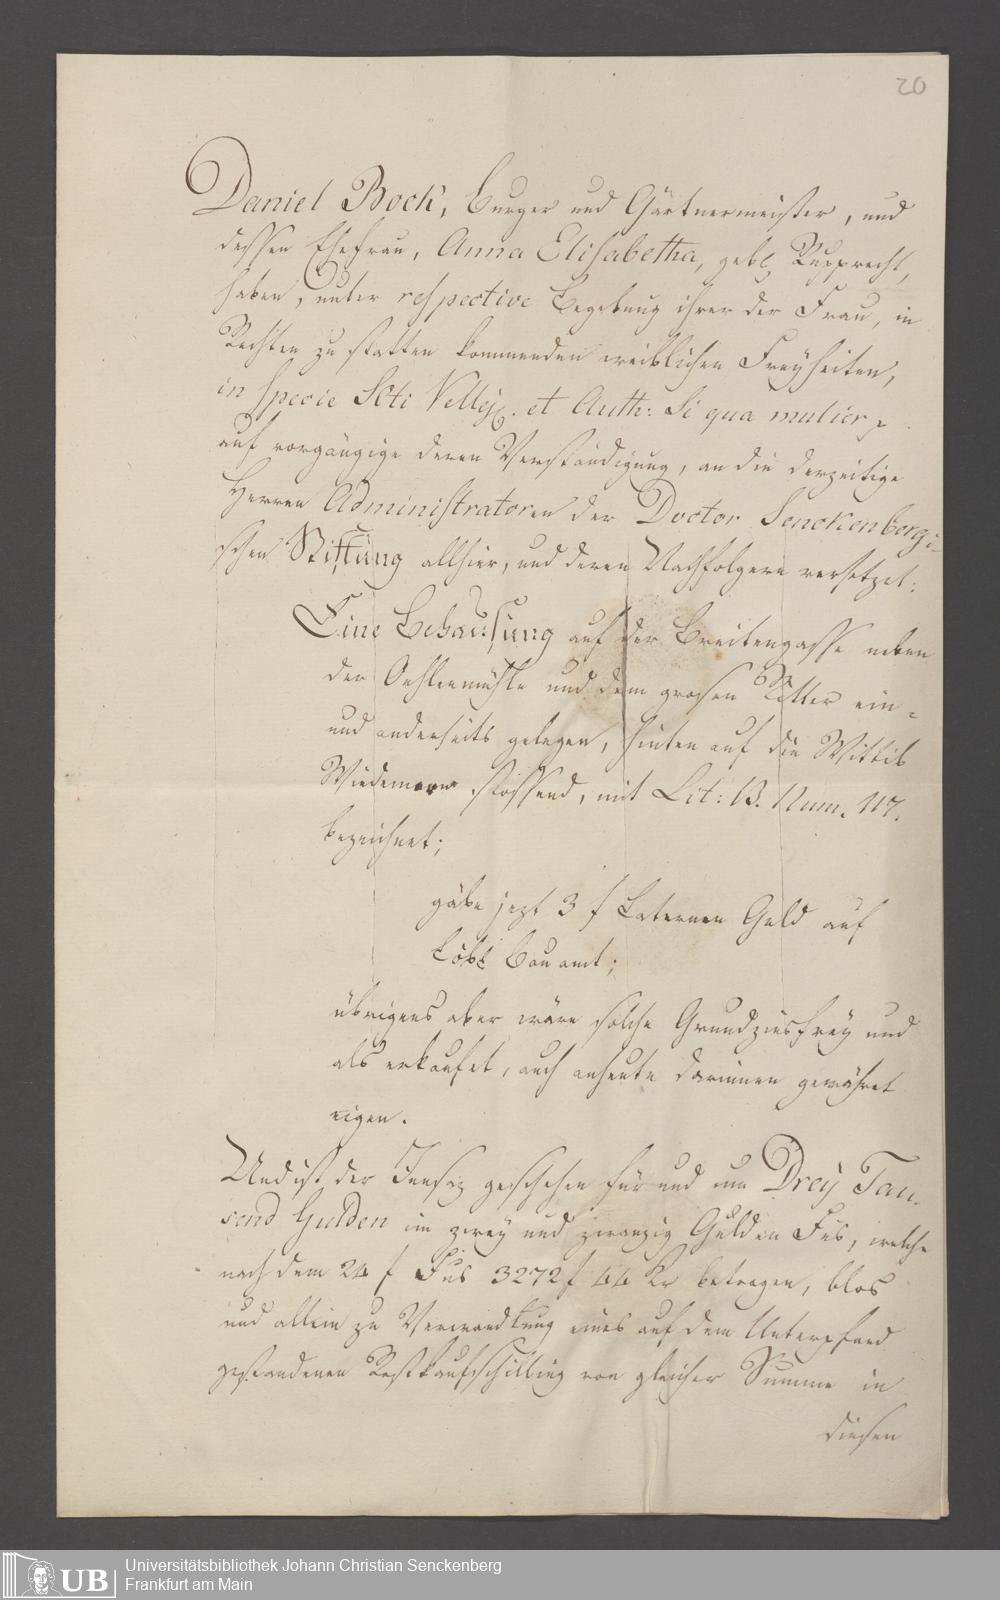 20
Daniel Bock, Burger und Gärtnermeister, und
dessen Ehefrau, Anna Elisabetha, geb. Rupprecht,
haben, unter respective Begebung ihrer der Frau, in
Rechten zu statten kommenden weiblichen Freyheiten,
in specie Scti Vellej. et Auth: Si qua mulier p
auf vorgängige deren Verständigung, an die derzeitige
Herren Administratoren der Doctor Senckenbergi-
schen Stiftung allhier, und deren Nachfolgere versetzet:
Eine Behausung auf der Breitengasse neben
der Oehlenmühle und dem grosen Ritter ein-
und anderseits gelegen, hinten auf die Wittib
Wiedemann stossend, mit Lit: B. Num. 117.
bezeichnet;
gäbe jezt 3 f Laternen Geld auf
Löbl Bauamt;
übrigens aber wäre solche Grundzinsfrey und
als erkaufet, auch anheute darinnen gewähret
eigen.
Und ist der Insaz geschehen für und um Drey Tau-
send Gulden im zwey und zwanzig Gulden Fus, welche
nach dem 24 f Fus 3272 f 44 Kr betragen, blos
und allein zu Verwandlung eines auf dem Unterpfand
gestandenen Restkaufschilling von gleicher Summe in
diesen
UB
Universitätsbibliothek Johann Christian Senckenberg
Frankfurt am Main